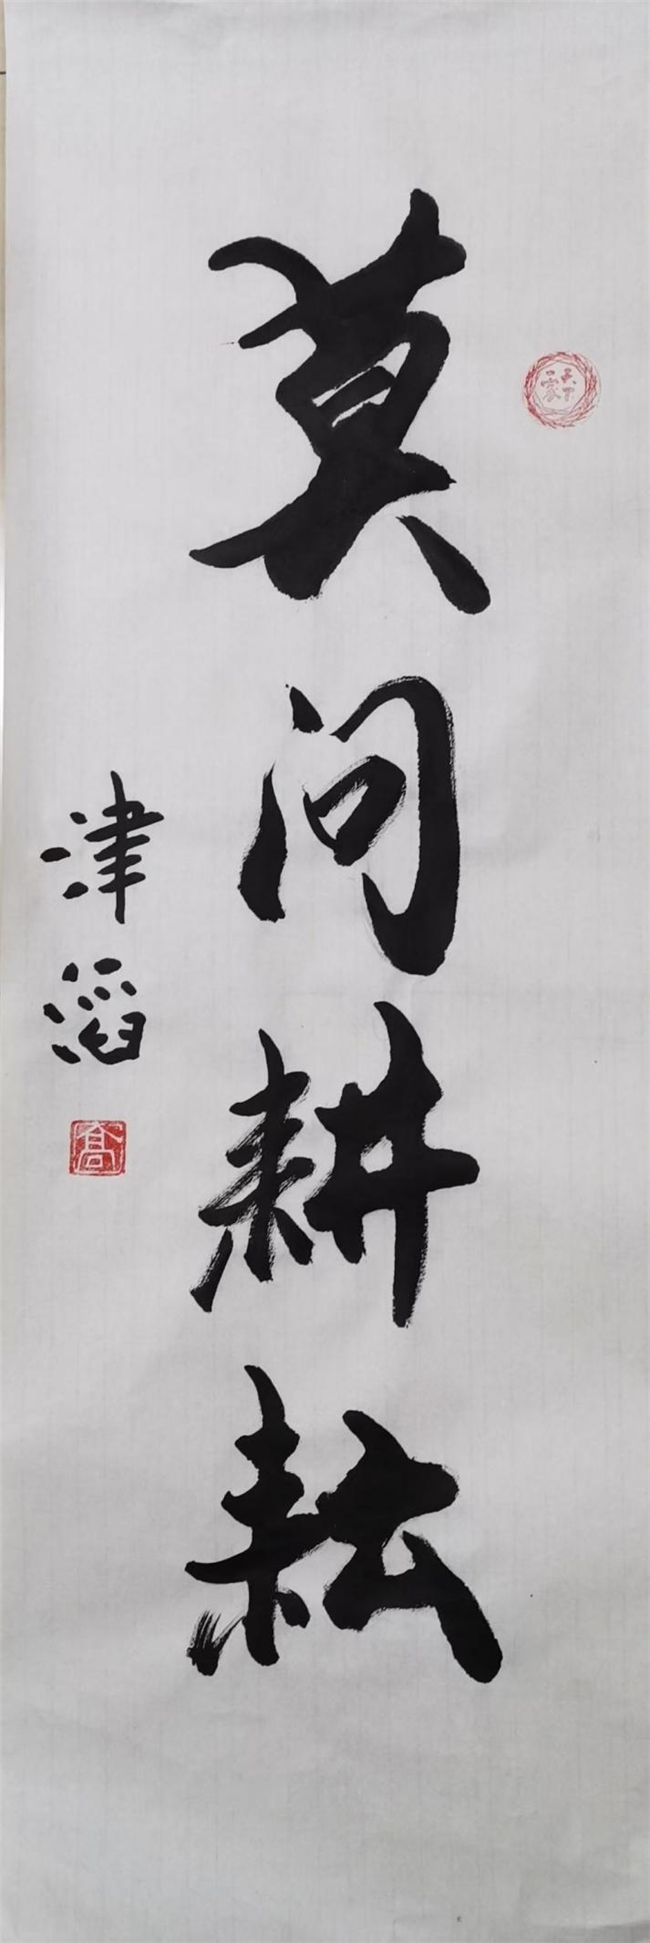 莫问耕耘
津滔
喬